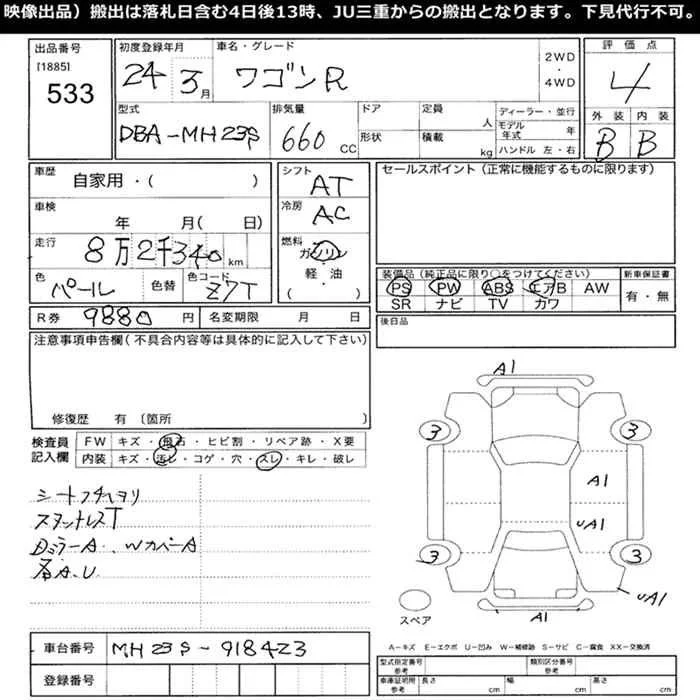 映像出品）搬出は落札日含む4日後13時、JU三重からの搬出となります。下見代行不可。
出品番号
[1885]
533
初度登録年月
24 3月
車名・グレード
ワゴンR
2WD
・
4WD
評価点
4
型式
DBA-MH23S
排気量
660 CC
ドア
形状
定員 人
積載 kg
ディーラー・並行
モデル年式 年
ハンドル 左・右
外装 内装
B B
車歴
自家用・( )
車検
年 月( 日)
走行
8万2千340 km
色
パール
色替
色コード
Z7T
シフト
AT
冷房
AC
燃料
ガソリン
軽・油
( ・ )
セールスポイント（正常に機能するものに限ります）
装備品（純正品に限り○をつけてください）
PS PW ABS エアB AW
SR ナビ TV カワ
新車保証書
有・無
R券 9880 円
名変期限 月 日
後日品
注意事項申告欄（不具合内容等は具体的に記入して下さい）
修復歴 有〔箇所 〕
検査員記入欄
FW キズ・飛石・ヒビ割・リペア跡・X要
内装 キズ・汚レ・コゲ・穴・スレ・キレ・破レ
スタットレスT
DミラーA、WカバーA
各A.U
A1
3 3
A1
uA1
3 3
uA1
A1
スペア
A−キズ E−エクボ U−凹み W−補修跡 S−サビ C−腐食 XX−交換済
車台番号 MH23S-918423
登録番号
型式指定番号 参考
類別区分番号 参考
車庫証明用 参考
長さ cm
幅 cm
高さ cm